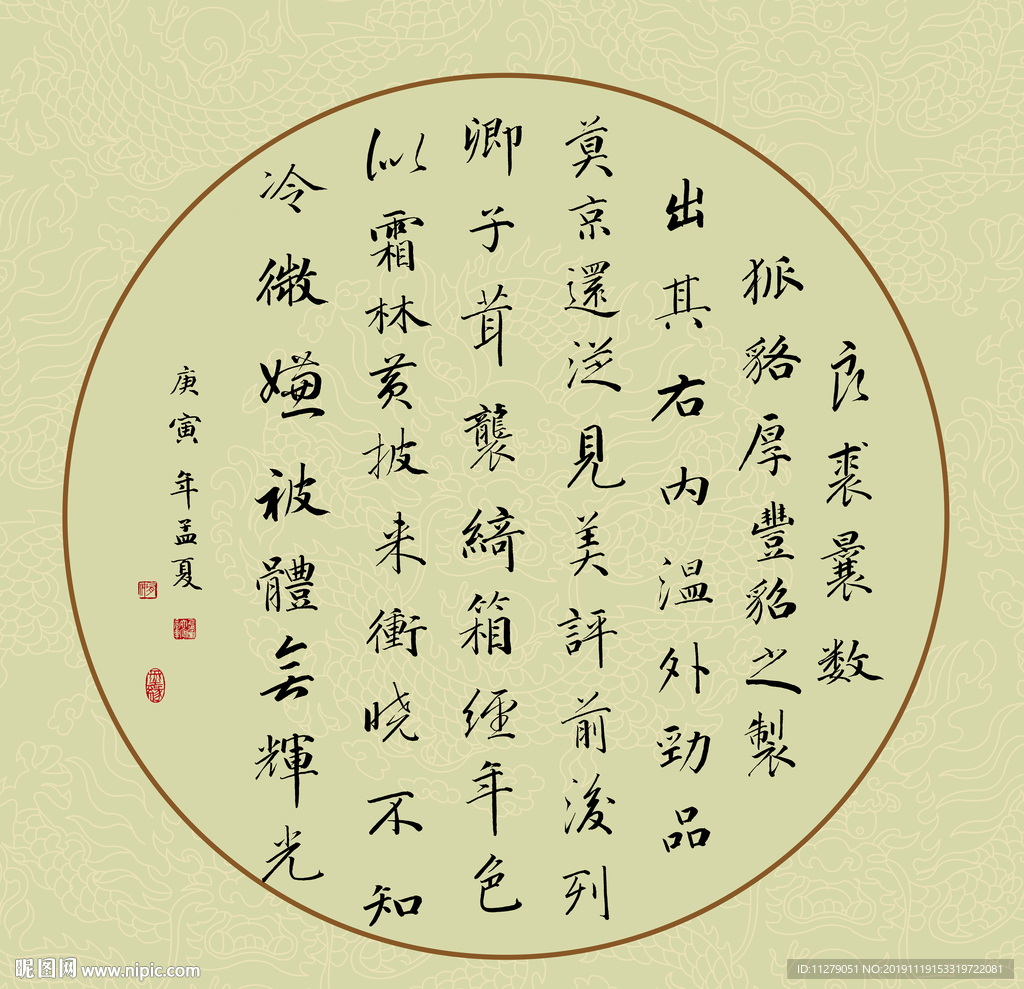 良裘曩数
狐貉厚豐貂之製
出其右内温外勁品
莫京還從見美評前後列
卿子茸襲綺箱經年色
似霜林黄披来衝晓不知
冷微嫌被體無輝光
庚寅年孟夏
昵图网 www.nipic.com
ID:11279051 NO:20191119153319722081